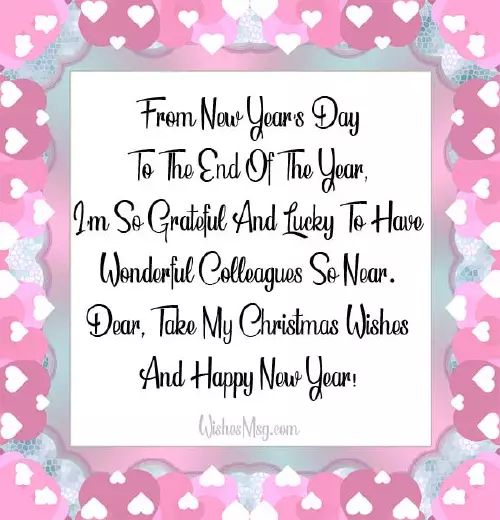 From New Year's Day
To The End Of The Year,
I'm So Grateful And Lucky To Have
Wonderful Colleagues So Near.
Dear, Take My Christmas Wishes
And Happy New Year!
WishesMsg.com